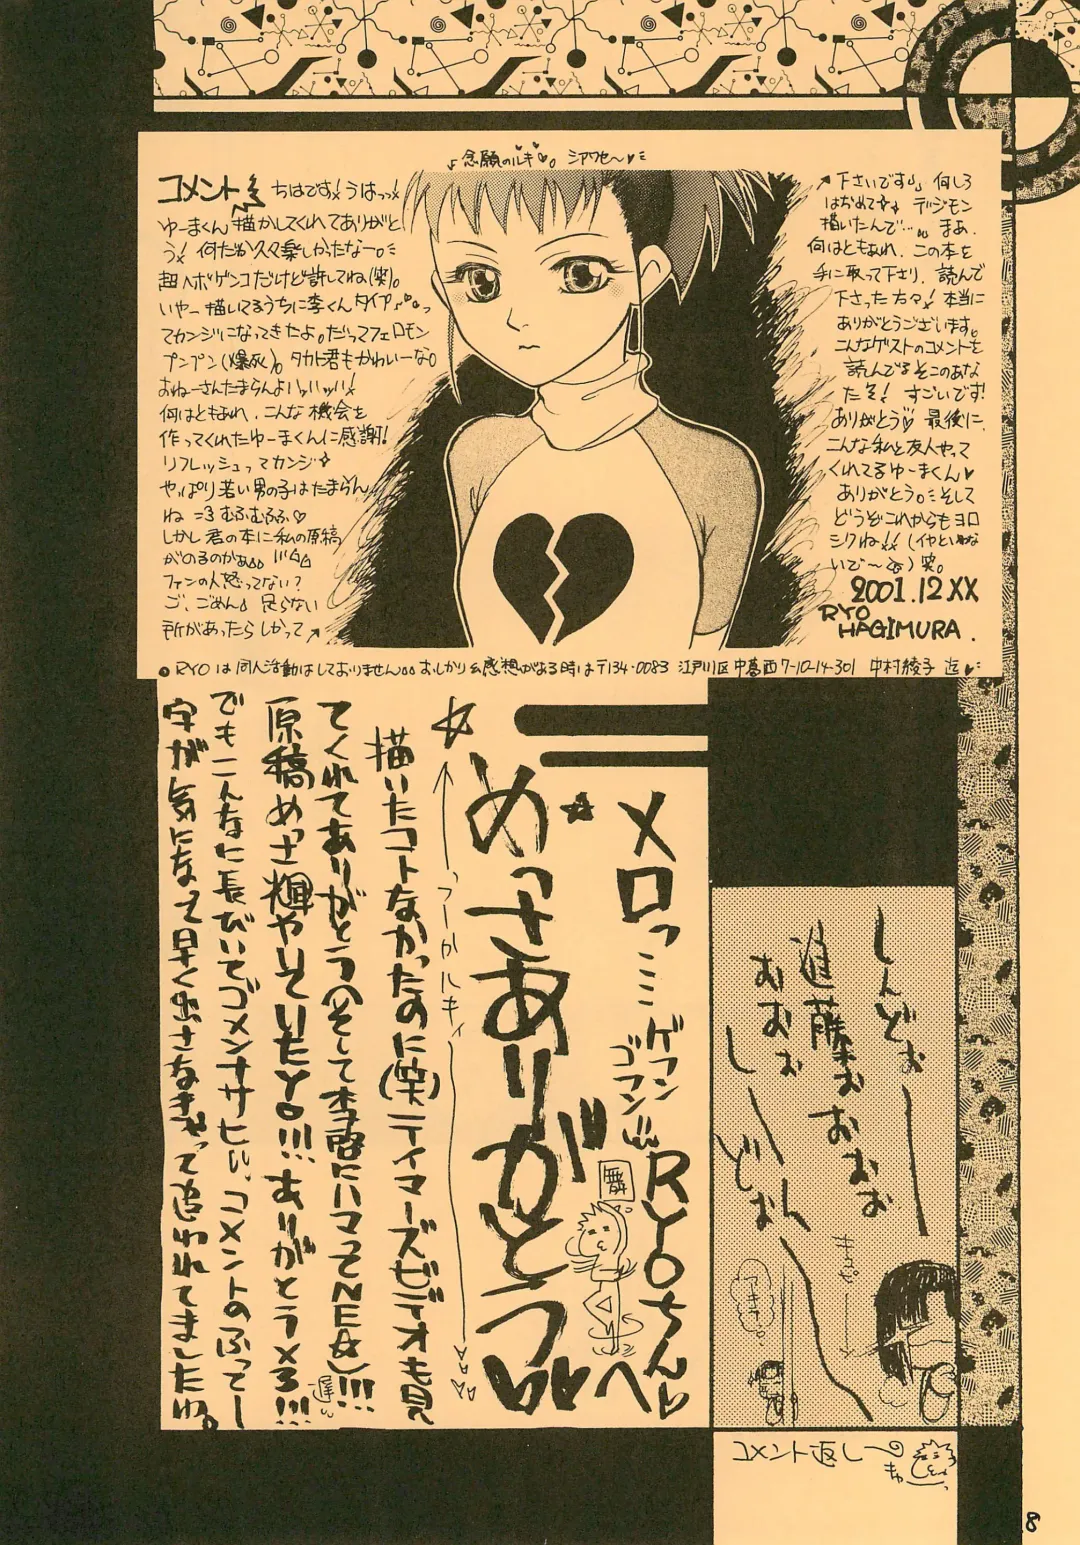 ♪念願のルキ♥。 シアワセ〜♥
コメント
ちはです！うはっっ！
ゆーまくん描かしてくれてありがと
う！ 何だか久々楽しかったなー。
超ヘボゲンコだけど許してね(笑)。
いやー描いてるうちに李くんタイプ♪っ
てカンジになってきたよ。だってフェロモン
プンプン(爆死)。タカト君もかわいーな。
おねーさんたまらんよハッハッハッ！
何はともあれ、こんな機会を
作ってくれたゆーまくんに感謝！
リフレッシュってカンジ
やっぱり若い男の子はたまらん
ね =3 むふむふふ♡
しかし君の本に私の原稿
がのるのかぁ
ファンの人怒ってない？
ご、ごめん 足らない
所があったらしかって↗
↗下さいです♪ 何しろ
はじめて デジモン
描いたんで…。まあ、
何はともあれ、この本を
手に取って下さり、読んで
下さった方々！本当に
ありがとうございます。
こんなゲストのコメントを
読んでるそこのあな
たそ！ すごいです！
ありがとう♡ 最後に、
こんな私と友人やって
くれてるゆーまくん♥
ありがとう。そして
どうぞこれからもヨロ
シクね！！(イヤといわな
いで〜)笑。
2001.12XX
RYO
HAGIMURA.
RYOは同人活動はしておりません。おしかり&感想がある時は〒134-0083 江戸川区中葛西7-10-14-301 中村綾子 迄♥
しんどぉー
進藤ぉぉぉぉ
おおぉ
しーんどぉー
キュピーー
アキラ!
メロっミミ
ゲフン
ゴフン
RYOちん♥へ
舞
めっさありがとう♥♥
っつーかルキィ
描いたコトなかったのに(笑)テイマーズビデオも見
てくれてありがとう(そして李啓にハマってNE☆)!!!
原稿めっさ輝やいていたYO!!! ありがとうメろ!!!
遅い
でもこんなに長びいてゴメンナサヒ。コメントのふってー
字が気になって早く出さなきゃって追われてましたわ。
コメント返し〜の
きゅ
8